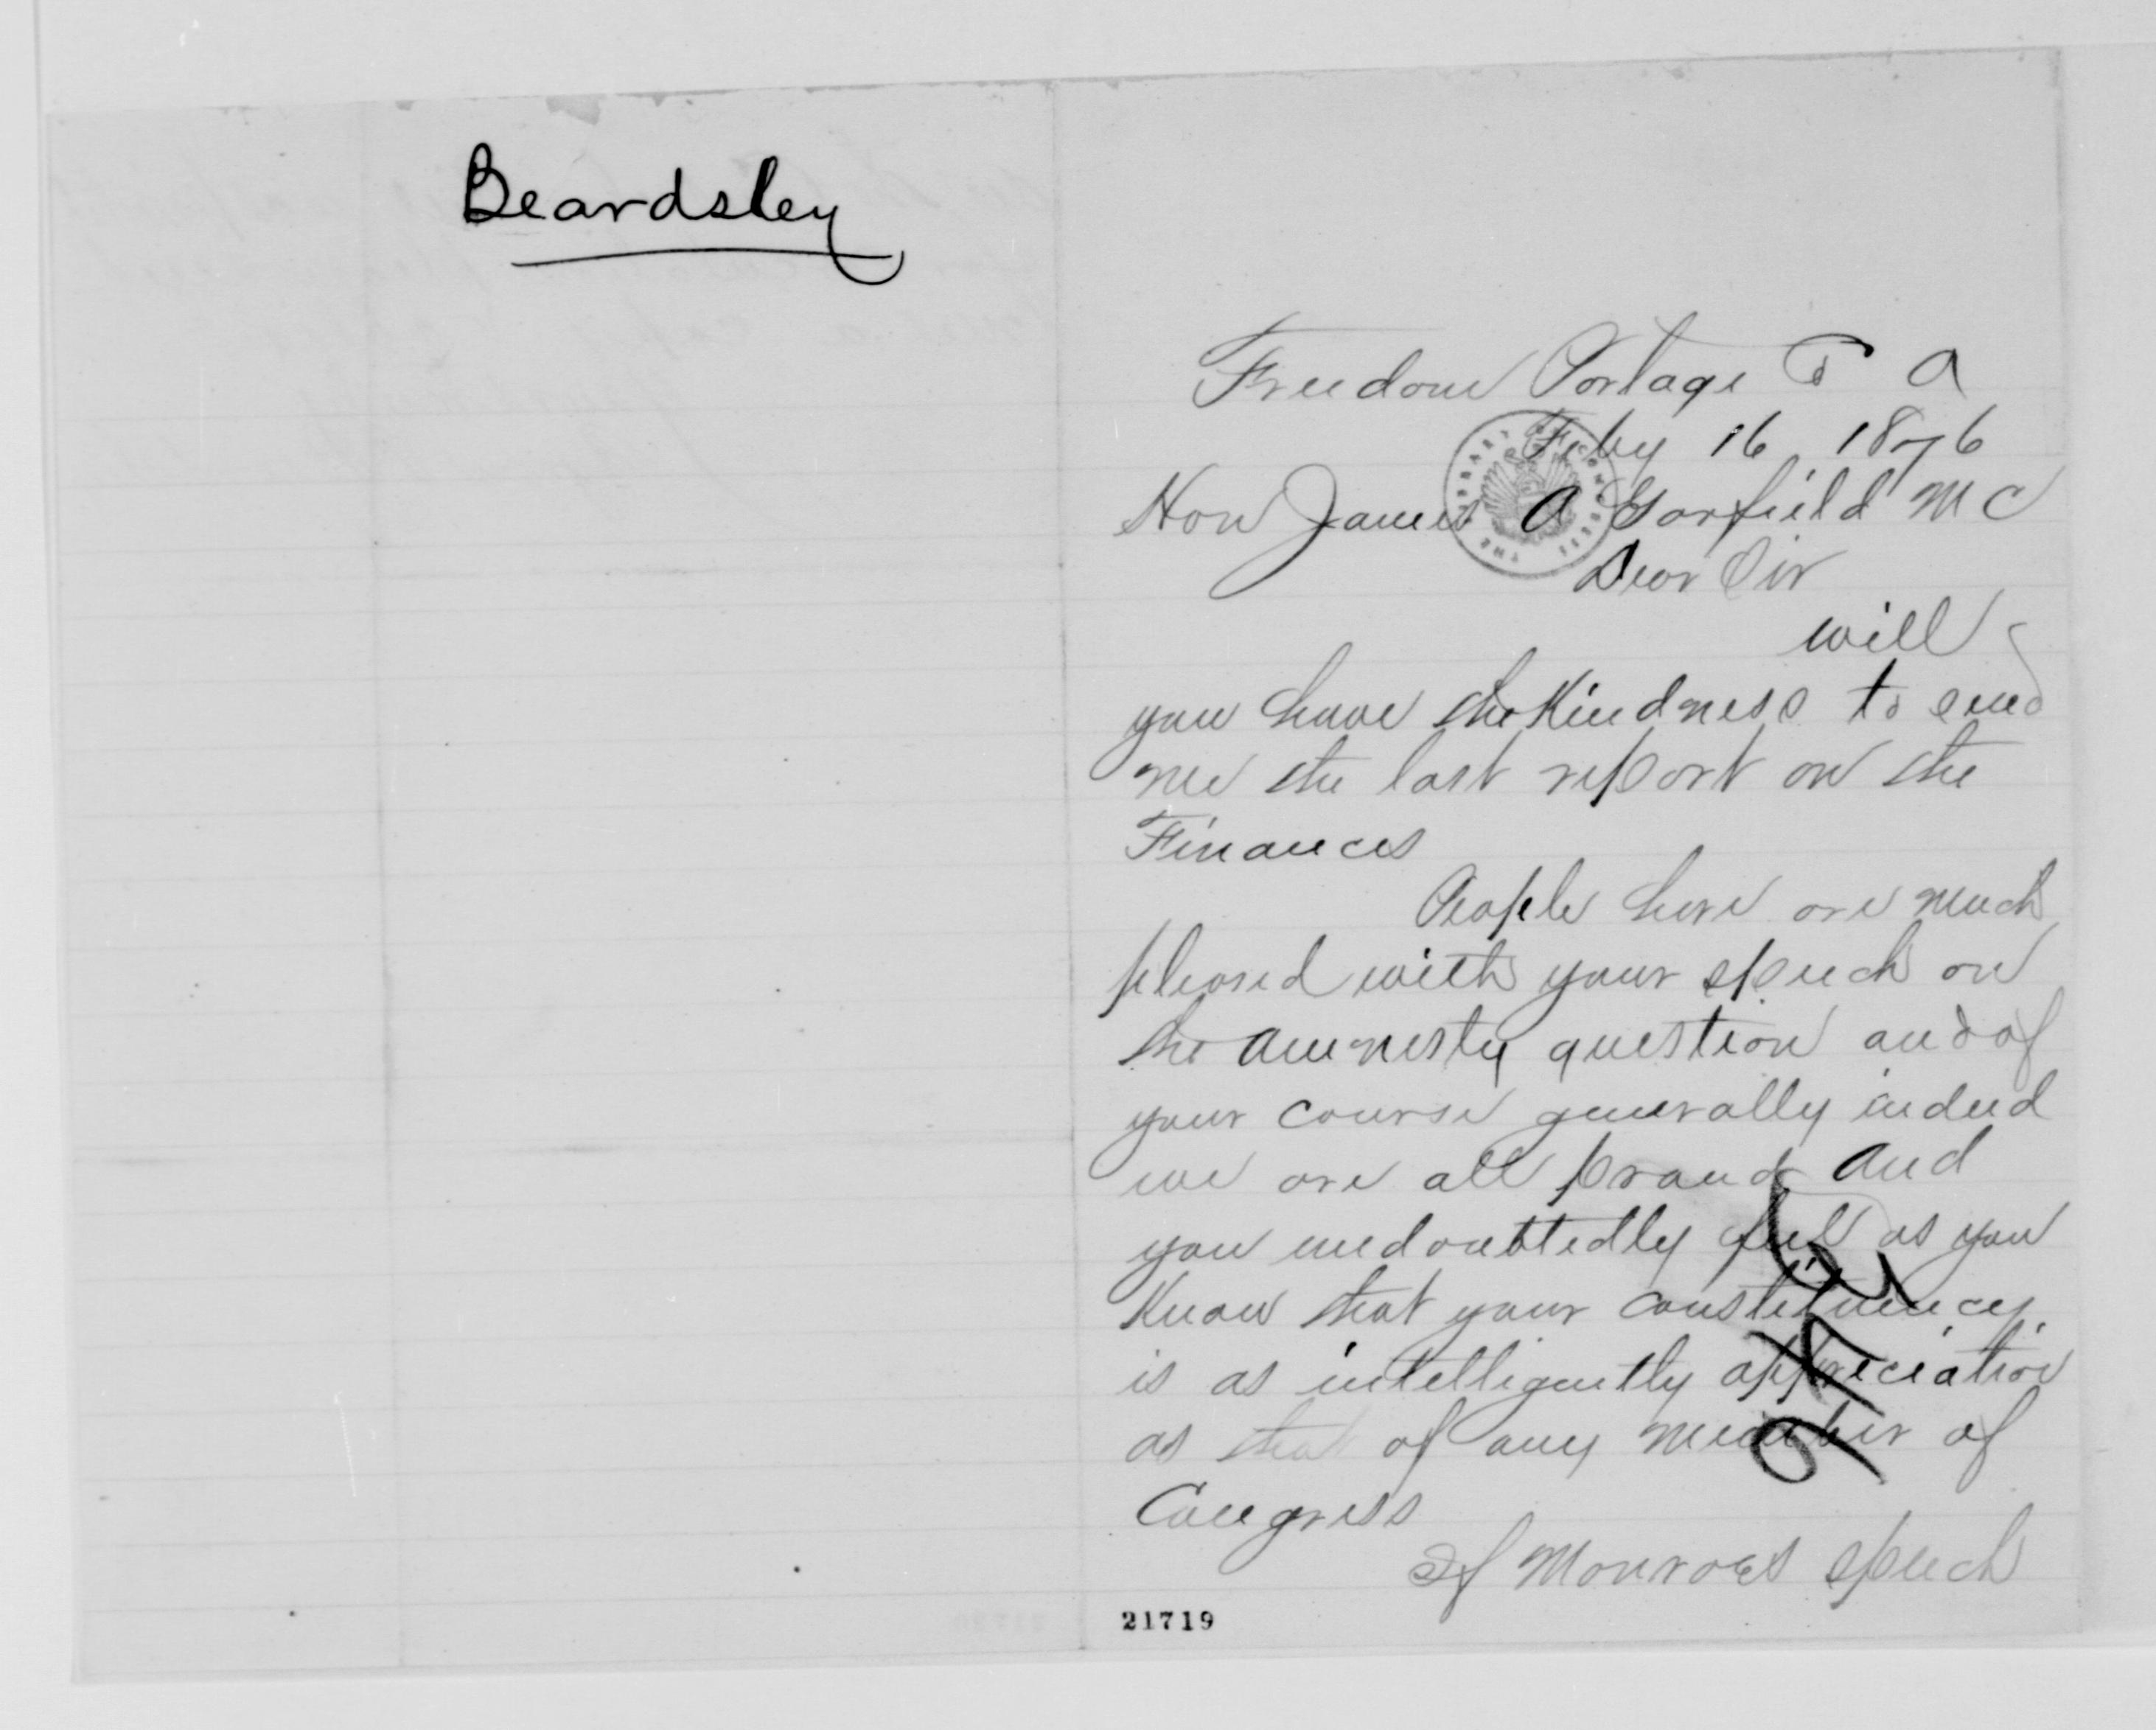 Beardsley
Freedom Portage
Feby 16 1876
Hon James A Garfield M C
Dear Sir
will
you have the kindness to send
me the last report on the
Finances
People here are much
pleased with your speech on
the amnesty question and of
your course generally indeed
we are all proud and
you undoubtedly feel as you
Know that your constituency
is as intelligently appreciation
as that of any member of
Congress
If Monroes speech
21719